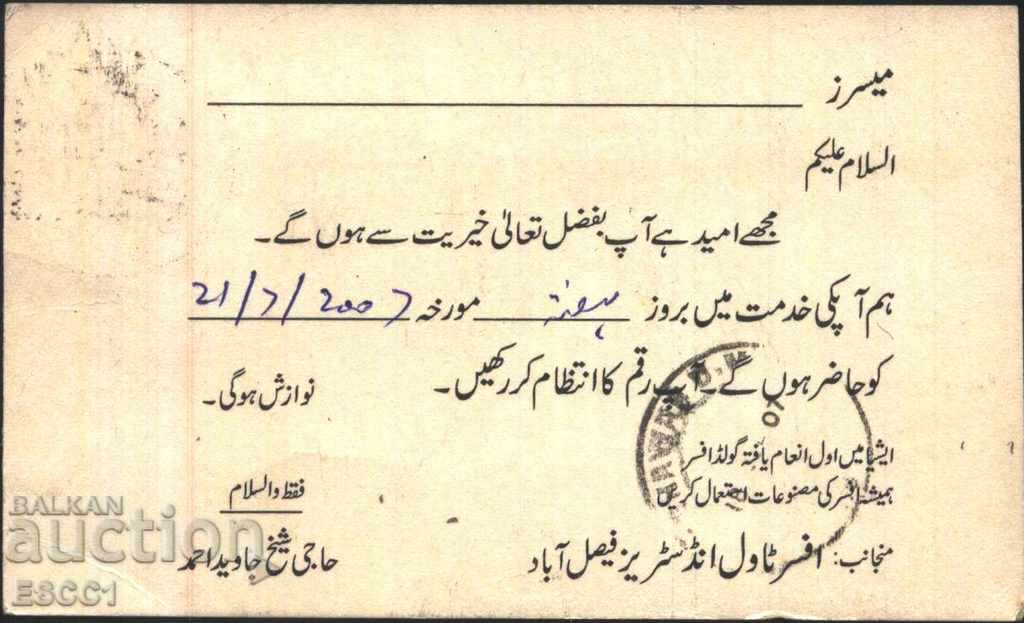 میسرز
السلام علیکم
مجھے امید ہے آپ بفضل تعالیٰ خیریت سے ہوں گے۔
ہم آپکی خدمت میں بروز ہفتہ مورخہ 21/7/2007
کو حاضر ہوں گے۔ آپ رقم کا انتظام کر رکھیں۔ نوازش ہوگی۔
ایشیا میں اول انعام یافتہ گولڈ افسر
ہمیشہ افسر کی مصنوعات استعمال کریں
فقط والسلام
منجانب: افسر ٹاول انڈسٹریز فیصل آباد
حاجی شیخ جاوید احمد
BALKAN
auction
E3CC1